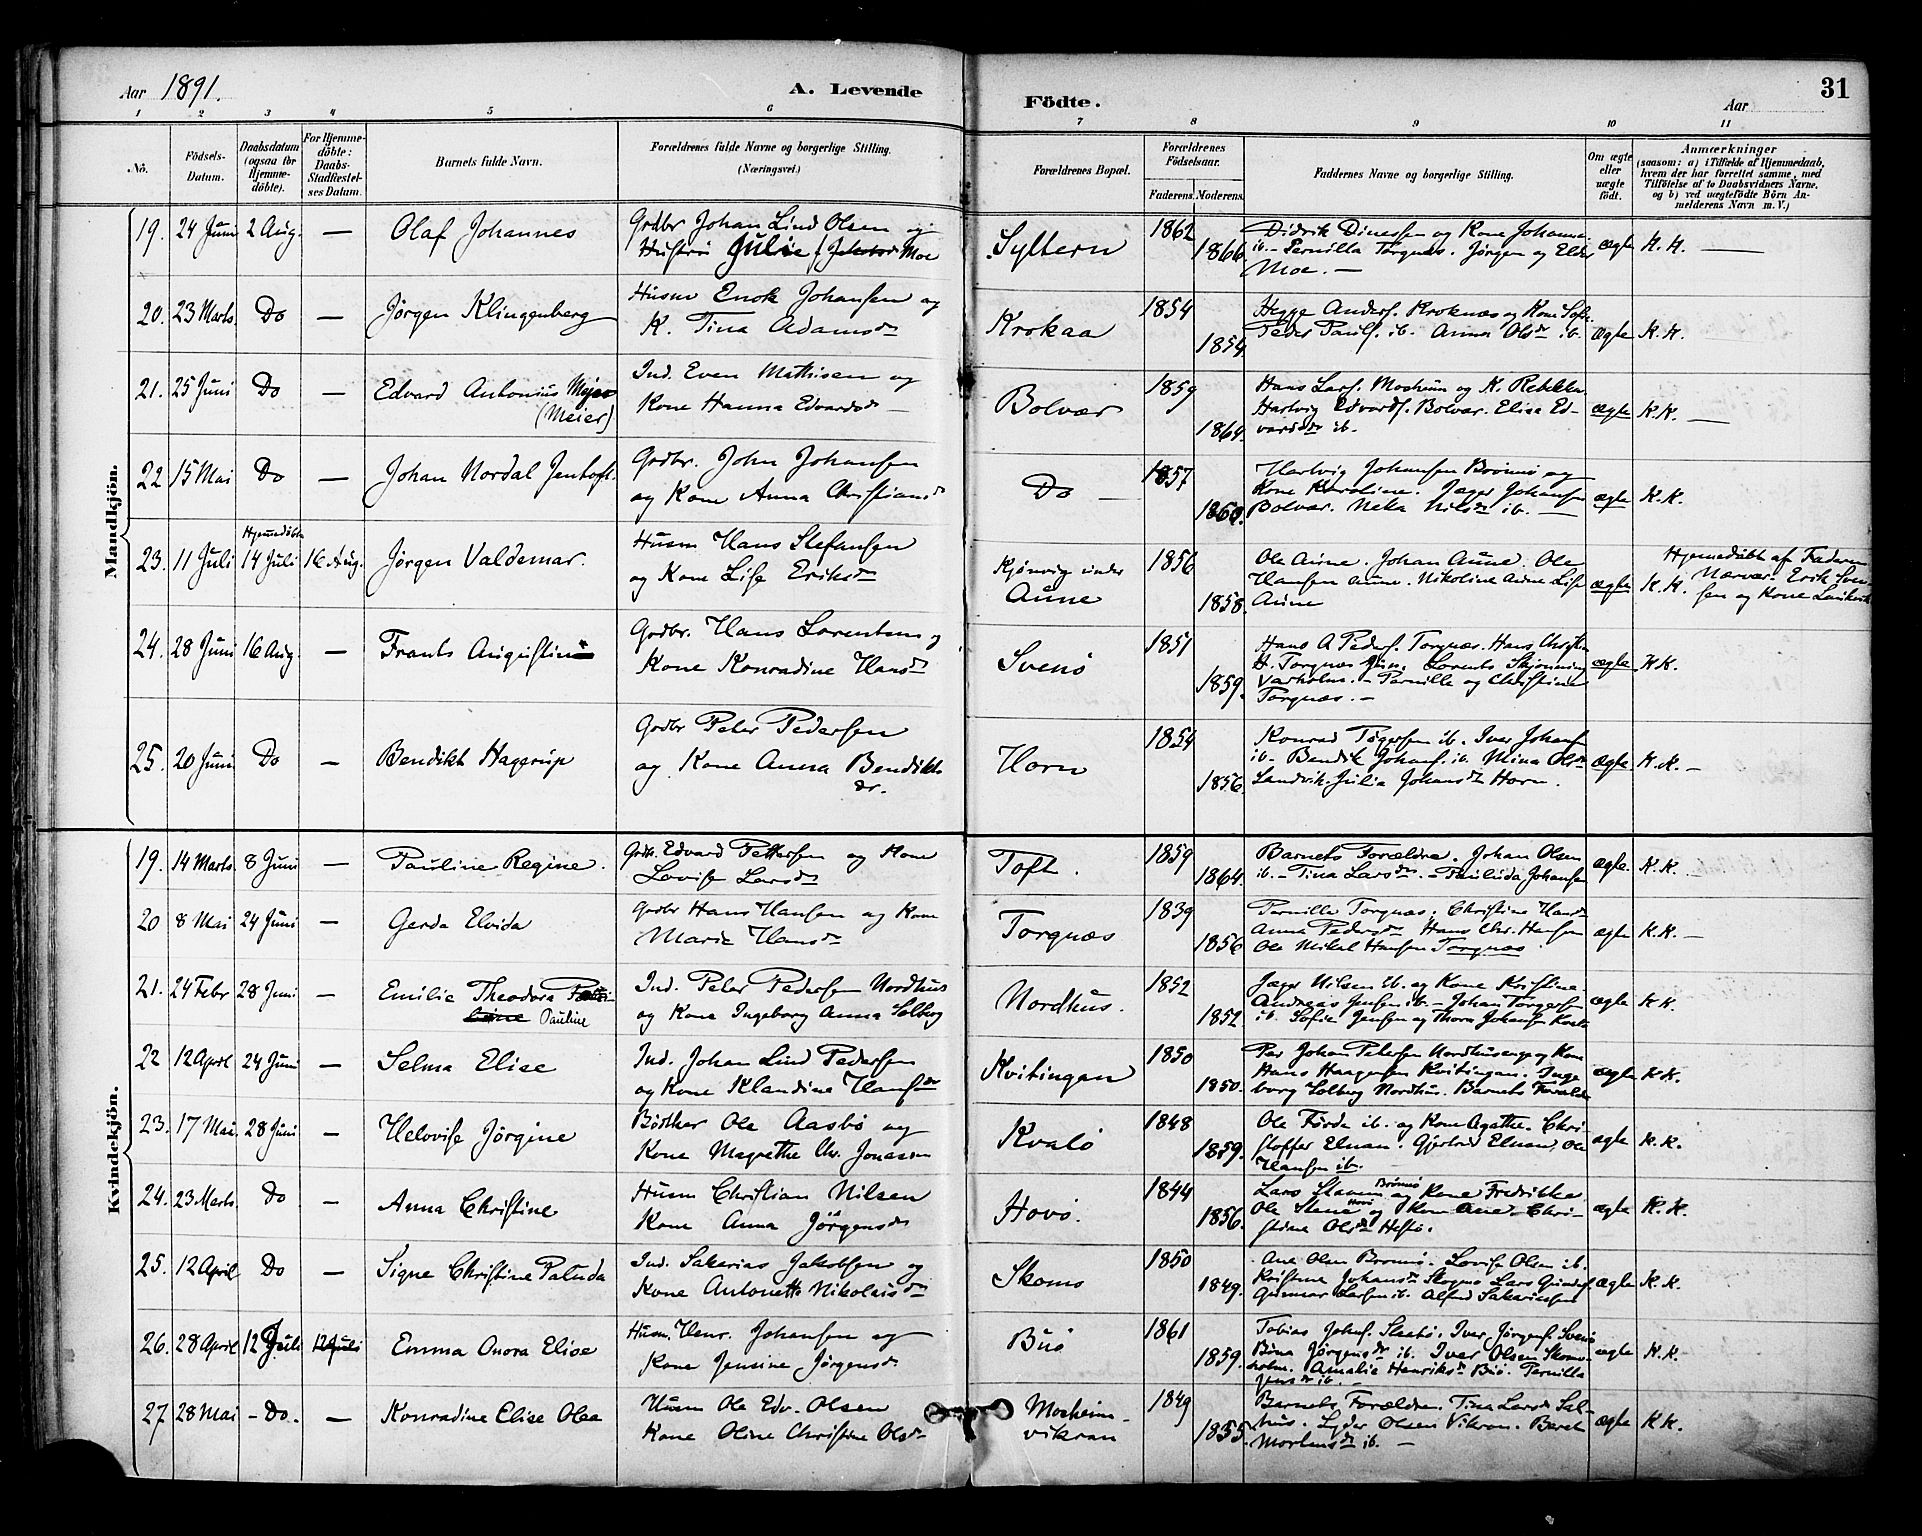 Aar 1891.
A. Levende
Födte.
Aar
31
1 2 3 4 5 6 7 8 9 10 11
No.
Födsels-Datum.
Daabsdatum (ogsaa for Hjemmedöbte).
For Hjemmedöbte: Daabs-Stadfestelses Datum.
Barnets fulde Navn.
Forældrenes fulde Navne og borgerlige Stilling.
(Næringsvei.)
Forældrenes Bopæl.
Forældrenes Födselsaar.
Faderens. Moderens.
Faddernes Navne og borgerlige Stilling.
Om ægte eller uægte födt.
Anmærkninger
(saasom: a) i Tilfælde af Hjemmedaab, hvem der har forrettet samme, med Tilföielse af to Daabsvidners Navne, og b) ved uægtefödte Börn Anmelderens Navn m. V.)
Mandkjön.
19. 24 Juni 2 Aug. — Olaf Johannes
Grdbr Johan Lind Olsen og
Hustru Julie Moe
Syltern 1862 1866
Didrik Dinessen og Kone Johanna
ib. - Pernilla Torgnæs. Jörgen og
Moe. —
ægte K. K. —
20. 23 Marts. Do — Jörgen Klingenberg
Husm Enok Johansen og
K. Tina Adamsdr
Krokaa 1854 1854
Hegge Anders. Kroknæs og Kone
Peder Pauls. ib. Anna Olsdr ib.
Ægte K. K.
21. 25 Juni Do — Edvard Antonius Mejer
(Meier)
Ind. Even Mathisen og
Kone Hanna Edvardsdr —
Bolvær 1859 1864.
Hans Lars. Mosheim og K. Rebekka
Hartvig Edvards. Bolvær. Elisa Ed-
vardsdr ib.
ægte K. K. —
22 15 Mai Do — Johan Nordal Jentoft.
Grdbr. John Johansen
og Kone Anna Christiansdr
Do — 1857 1860.
Hartvig Johansen Brönnö og
Kone Karoline. Jæger Johansen
Bolvær. Nilsdr ib. —
ægte K. K.
23. 11 Juli Hjemmedöbt 14 Juli 16 Aug. Jörgen Valdemar.
Husm Hans Stefansen
og Kone Lise Eriksdr
under
Aune 1856 1858.
Ole Aune. Johan Aune. Ole
Hansen Aune. Nikoline Aune Lise
Aune
ægte K. K.
Hjemmedöbt af Faderen
Nærvær. Erik
sen og Kone
24. 28 Juni 16 Aug. — Frants Augustin
Grdbr. Hans Lorentsen og
Kone Konradine Hansdr
Svenö 1851 1859.
Hans A Peders. Torgnæs. Hans Christian
H. Torgnæs Jun. Lorents
Varholm. - Pernille og Christine
Torgnæs. —
ægte. K K.
25. 20 Juni Do — Bendikt Hagerup
Grdbr Peter Pedersen
og Kone Anna Bendikts
dr.
Horn 1854 1856.
Konrad Tögersen ib. Iver Johans
ib. Bendik Johans. ib. Mina Olsdr
Sandvik. Julia Johansdr Horn.
ægte. K. K. —
Kvindekjön.
19. 14 Marts. 8 Juni — Pauline Regine.
Grdbr. Edvard Pettersen og Kone
Lovise Larsdr
Toft. 1859 1864.
Barnets Forældre. Johan Olsen
ib. - Tina Larsdr. - Johansen
ægte. K. K. —
20 8 Mai 24 Juni — Gerda Elvida
Grdbr Hans Hansen og Kone
Marie Hansdr
Torgnæs 1839 1856
Pernille Torgnæs. Christine Hansdr
Anna Pedersdr Hans Chr. Hansen
Ole Mikal Hansen Torgnæs
ægte K. K. —
21. 24 Febr 28 Juni — Emilie Theodora
Pauline
Ind. Peter Pedersen Nordhus
og Kone Ingeborg Anna Solberg
Nordhus. 1852 1852
Jæger Nilsen ib. og Kone Kristine.
Andreas Jensen ib. - Johan Torgersen
ib. Sofie Jensen og Thora Johansen
ægte K K.
22 12 April 24 Juni — Selma Elise
Ind. Johan Lind Pedersen
og Kone Klaudine Hansdr
Kvitingen 1850 1850.
Per Johan Petersen og Kone
Hans Haagensen Kvitingen. Inge
borg Solberg Nordhus. Barnets Forældre
ægte K K.
23. 17 Mai. 28 Juni — Helovise Jörgine
Bödker Ole Aasbö og
Kone Magrethe Chr. Jonassen
Kvalö 1848 1859.
Ole Förde ib. og Kone Agathe. Chri-
stoffer Elnan. Gjertrud Elnan, Ole
Hansen ib.
ægte K. K.
24. 23 Marts. Do — Anna Christine
Husm Christian Nilsen
Kone Anna Jörgensdr
Hovö. 1844 1856.
Lars Brönnö og Kone Fredrikke.
Ole Hovö og Kone Ane Chri-
stine Olsdr
ægte K. K.
25. 12 April Do — Signe Christine Paluda
Ind. Sakarias Jakobsen og
Kone Antonette Nikolaisdr
Skomo 1850 1849.
Ane Olsen Brönnö. Lovise Olsen ib.
Kristine Johansdr Lars
Gunnar Larsen ib. Alfred Sakariasen
ægte K. K.
26. 28 April 12 Juli 12 Juli Emma Onora Elise
Husm. Henr. Johansen og
Kone Jensine Jörgensdr
Buö 1861 1859.
Tobias Johns. Iver Jörgens. Svenö
Jörgensdr ib. Iver Olsen Skoms-
holm. Amalie Henriksdr Buö. Pernilla
Jensdr ib. —
ægte K. K.
27 28 Mai - Do. — Konradine Elise Olea
Husm Ole Edv. Olsen
Kone Oline Christine Olsdr
Mosheim-
vikran 1849 1855.
Barnets Forældre. Tina Larsdr Sal-
hus. Olsen Vikran. Beret
Mortensdr ib. —
ægte K K.